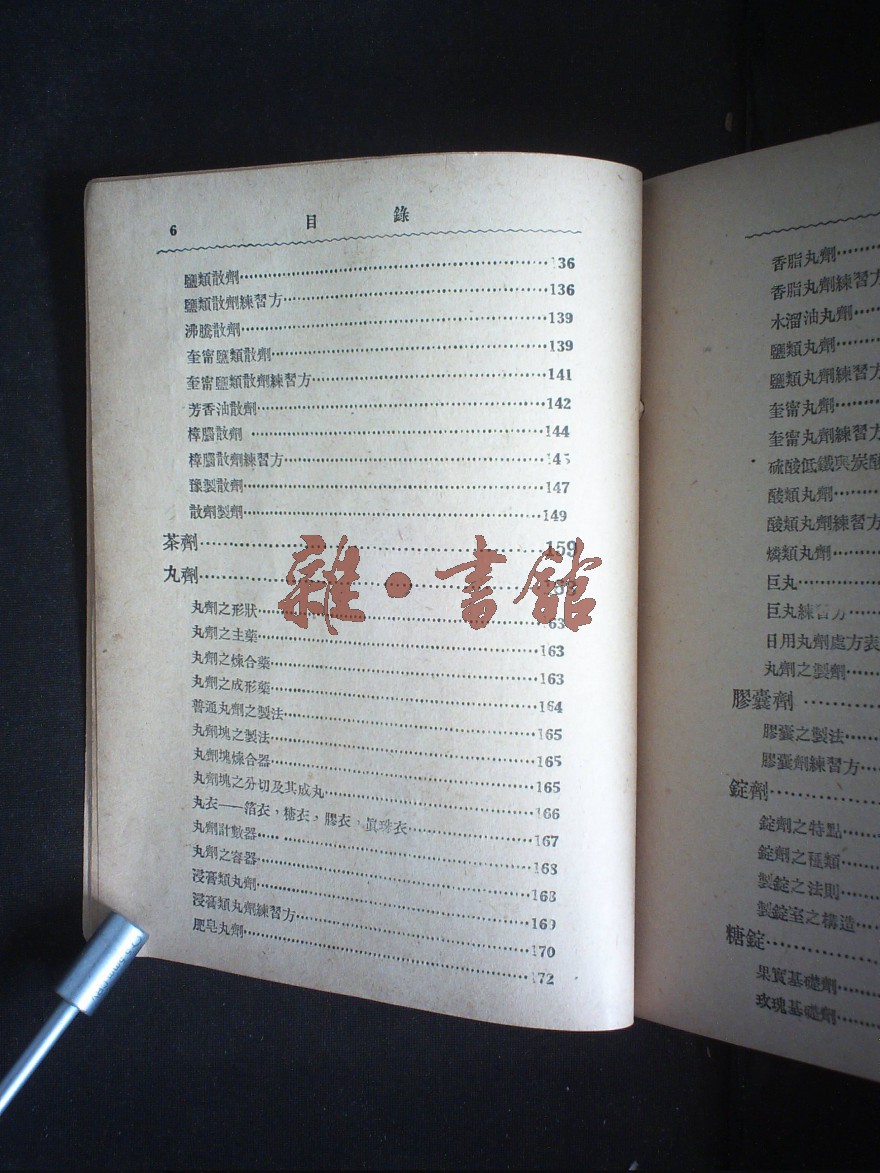 6 目錄
鹽類散劑……136
鹽類散劑練習方……136
沸騰散劑……139
奎甯鹽類散劑……139
奎甯鹽類散劑練習方……141
芳香油散劑……142
樟腦散劑……144
樟腦散劑練習方……145
豫製散劑……147
散劑製劑……149
茶劑……159
丸劑……163
丸劑之形狀……163
丸劑之主藥……163
丸劑之煉合藥……163
丸劑之成形藥……164
普通丸劑之製法……165
丸劑塊之製法……165
丸劑塊煉合器……165
丸劑塊之分切及其成丸……166
丸衣——箔衣，糖衣，膠衣，眞珠衣……167
丸劑計數器……168
丸劑之容器……168
浸膏類丸劑……169
浸膏類丸劑練習方……170
肥皂丸劑……172
雜·書館
香脂丸劑……
香脂丸劑練習方
水溜油丸劑……
鹽類丸劑……
鹽類丸劑練習方
奎甯丸劑……
奎甯丸劑練習方
硫酸低鐵與炭酸
酸類丸劑……
酸類丸劑練習方
燐類丸劑……
巨丸……
巨丸練習方……
日用丸劑處方表
丸劑之製劑……
膠囊劑……
膠囊之製法……
膠囊劑練習方……
錠劑……
錠劑之特點……
錠劑之種類……
製錠之法則……
製錠室之構造……
糖錠……
果實基礎劑……
玫瑰基礎劑……